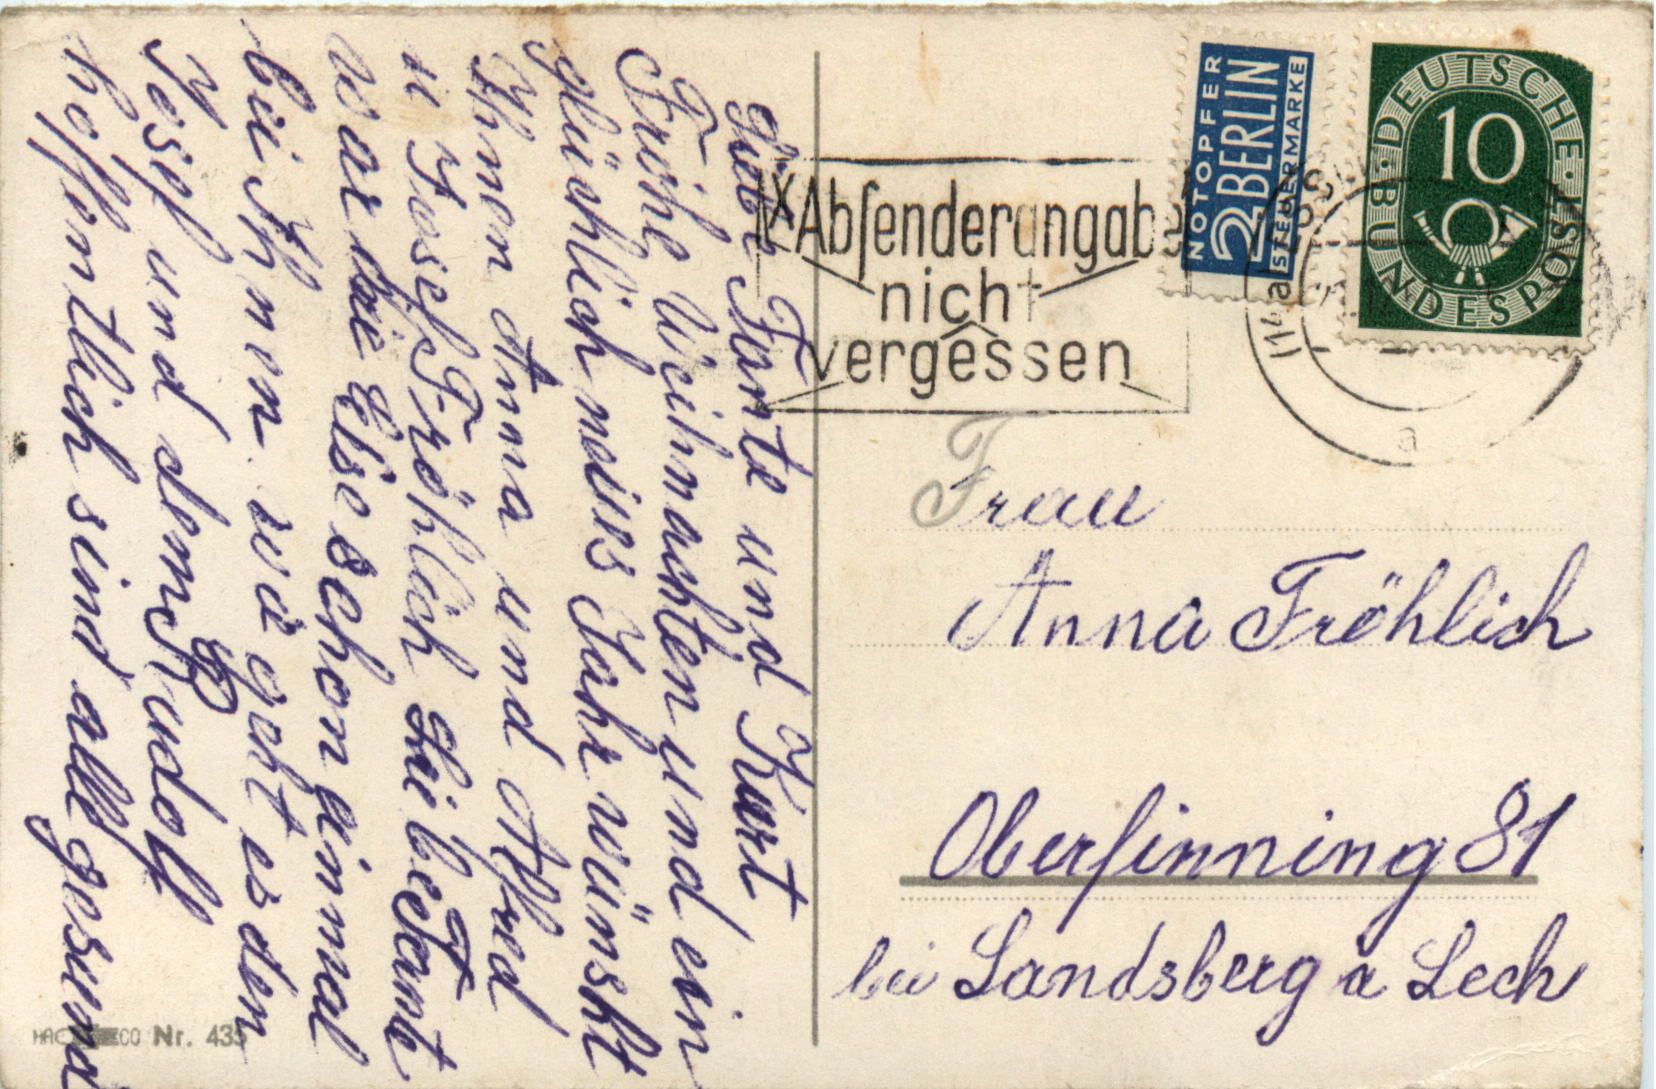 Liebe Tante und Kurt
Frohe Weihnachten und ein
glücklich neues Jahr wünscht
Ihnen Anna und Alfred
u Josef Fröhlich Liebe Tant
war die Else schon einmal
bei Ihnen wie geht es den
Josef und dem Rudolf
hoffentlich sind alle gesund
HACO Nr. 435
NOTOPFER
2 BERLIN
STEUERMARKE
DEUTSCHE BUNDESPOST
10
Absenderangabe
nicht
vergessen
a
Frau
Anna Fröhlich
Oberfinning 81
bei Landsberg a Lech